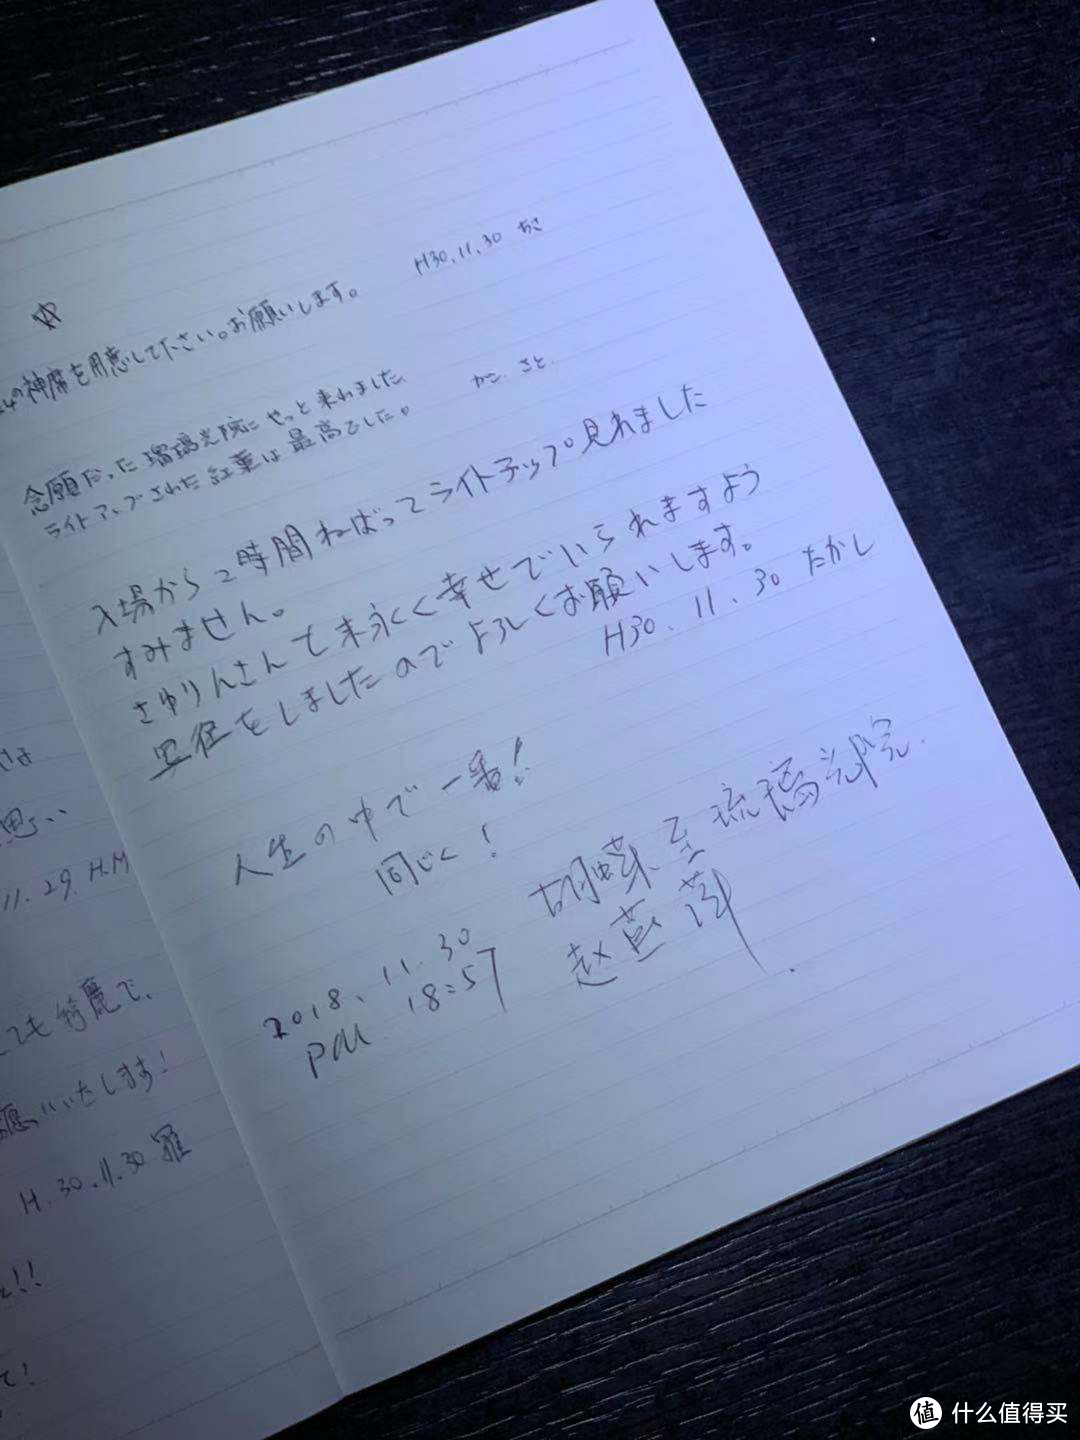 さま
思い
11.29 H.M
ても綺麗で、
願いいたします!
H.30.11.30 羅
!!
て!
☆
を用意して下さい。お願いします。
H30.11.30 ちさ
念願だった瑠璃光院にやっと来れました
ライトアップされた紅葉は最高でした。
かこ さと.
入場から2時間ねばってライトアップ見れました
すみません。
さゆりんさんて末永く幸せでいられますよう
写経をしましたのでよろしくお願いします。
H30.11.30 たかし
人生の中で一番!
同じく!
2018.11.30
PM 18:57
胡蝶至琉璃光院.
赵
值 什么值得买